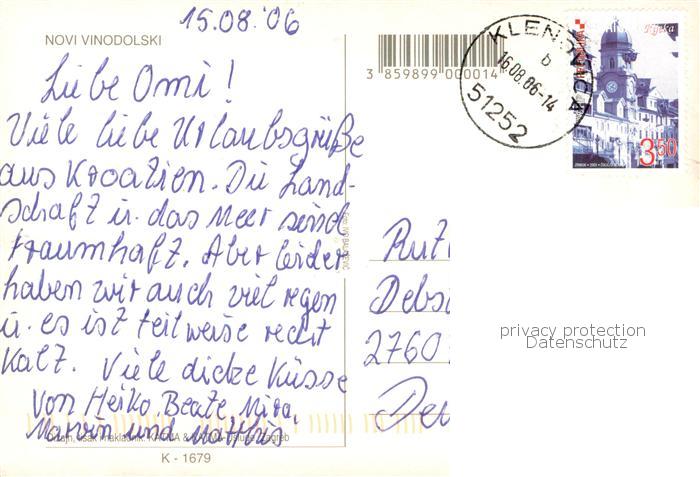 15.08.'06
NOVI VINODOLSKI
Liebe Omi!
Viele liebe Urlaubsgrüße
aus Kroatien. Die Land-
schaft u. das Meer sind
traumhaft. Aber leider
haben wir auch viel regen
u. es ist teilweise recht
kalt. Viele dicke Küsse
von Heiko, Beate, Mira,
Marvin und Matthis
K - 1679
3 859899 000014
KLENOVICA
b
16.08.06-14
51252
Rijeka
3.50
Rut
Debs
2760
Deu
privacy protection
Datenschutz